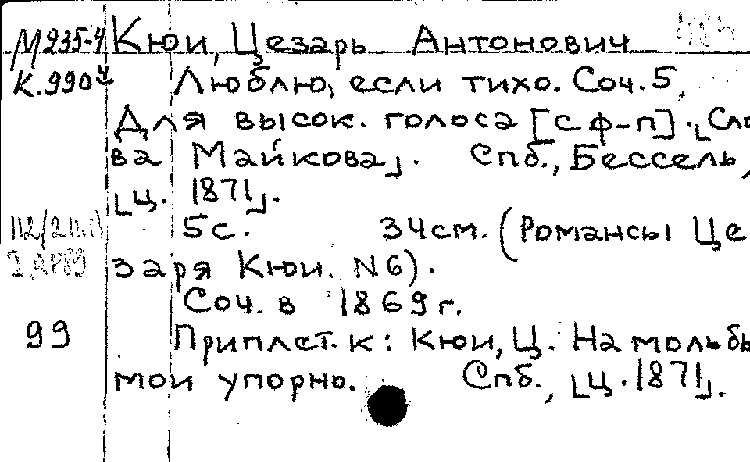 М935-4 Кюи, Цезарь Антонович
К.990ч Люблю, если тихо. Соч. 5,
Для высок. голоса [с ф-п]. [Сло
ва Майкова]. Спб., Бессель,
[ц. 1871].
5 с. 34 см. (Романсы Це
заря Кюи. N6).
Соч. в 1869 г.
99 Приплет. к: Кюи, Ц. На мольбы
мои упорно. Спб., [ц. 1871].